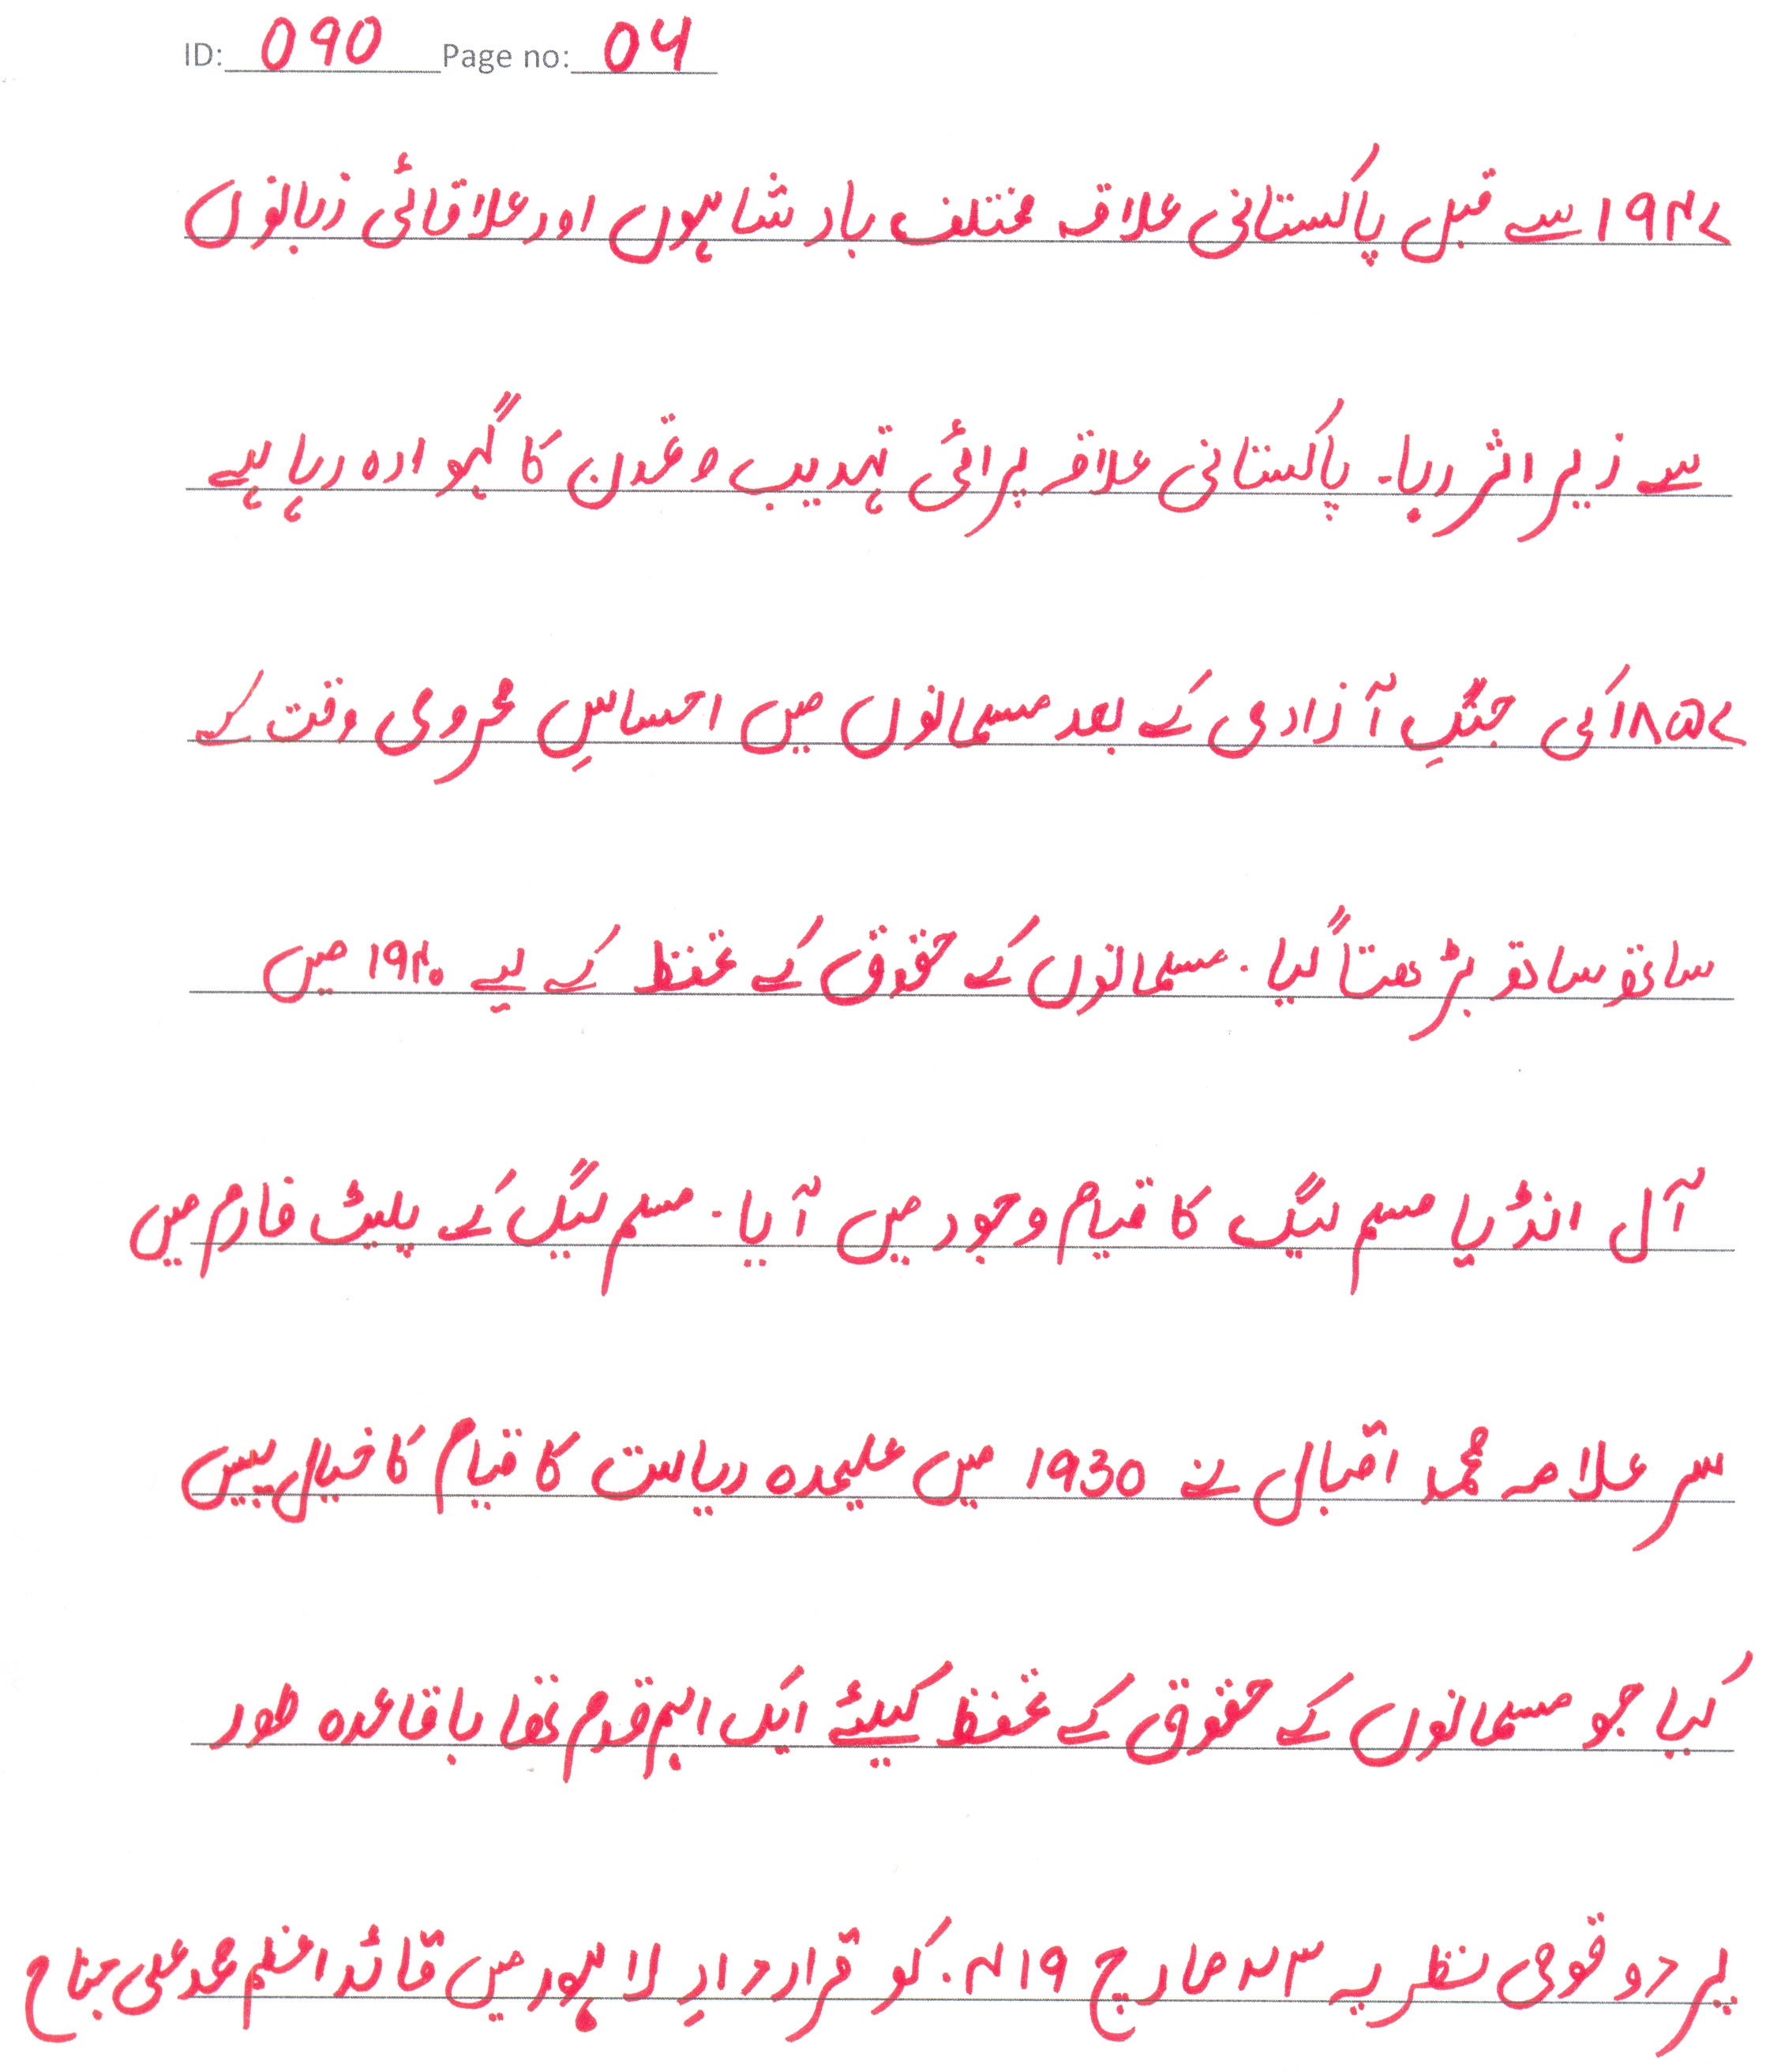 ID: 090 Page no: 04
۱۹۴۷ سے قبل پاکستانی علاقہ مختلف بادشاہوں اور علاقائی زبانوں
سے زیر اثر رہا۔ پاکستانی علاقہ پرائی تہذیب و تمدن کا گہوارہ رہا ہے
۱۸۵۷ کی جنگِ آزادی کے بعد مسلمانوں میں احساسِ محرومی وقت کے
ساتھ ساتھ بڑھتا گیا ۔ مسلمانوں کے حقوق کے تحفظ کے لیے ۱۹۴۰ میں
آل انڈیا مسلم لیگ کا قیام وجود میں آیا ۔ مسلم لیگ کے پلیٹ فارم میں
سر علامہ محمد اقبال نے 1930 میں علیحدہ ریاست کا قیام کا خیال پیس
کیا جو مسلمانوں کے حقوق کے تحفظ کیلئے ایک اہم قدم تھا باقاعدہ طور
پر دو قومی نظریہ ۲۳ مارچ ۱۹۴۰ کو قراردادِ لاہور میں قائد اعظم محمد علی جناح